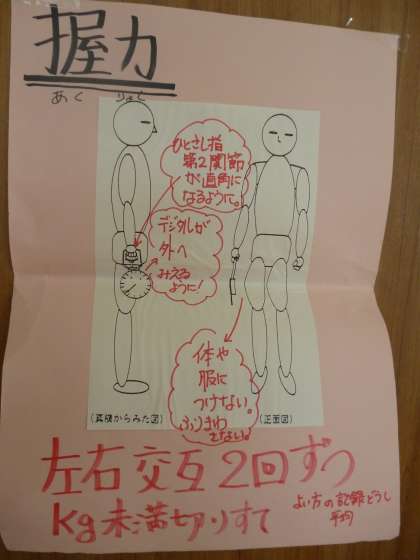 握力
あくりょく
ひとさし指
第2関節
が直角に
なるように。
デジタルが
外へ
みえる
ように!
体や
服に
つけない。
ふりまわ
さない。
(真横からみた図)
(正面図)
左右交互2回ずつ
kg未満切りすて
よい方の記録どうし
平均